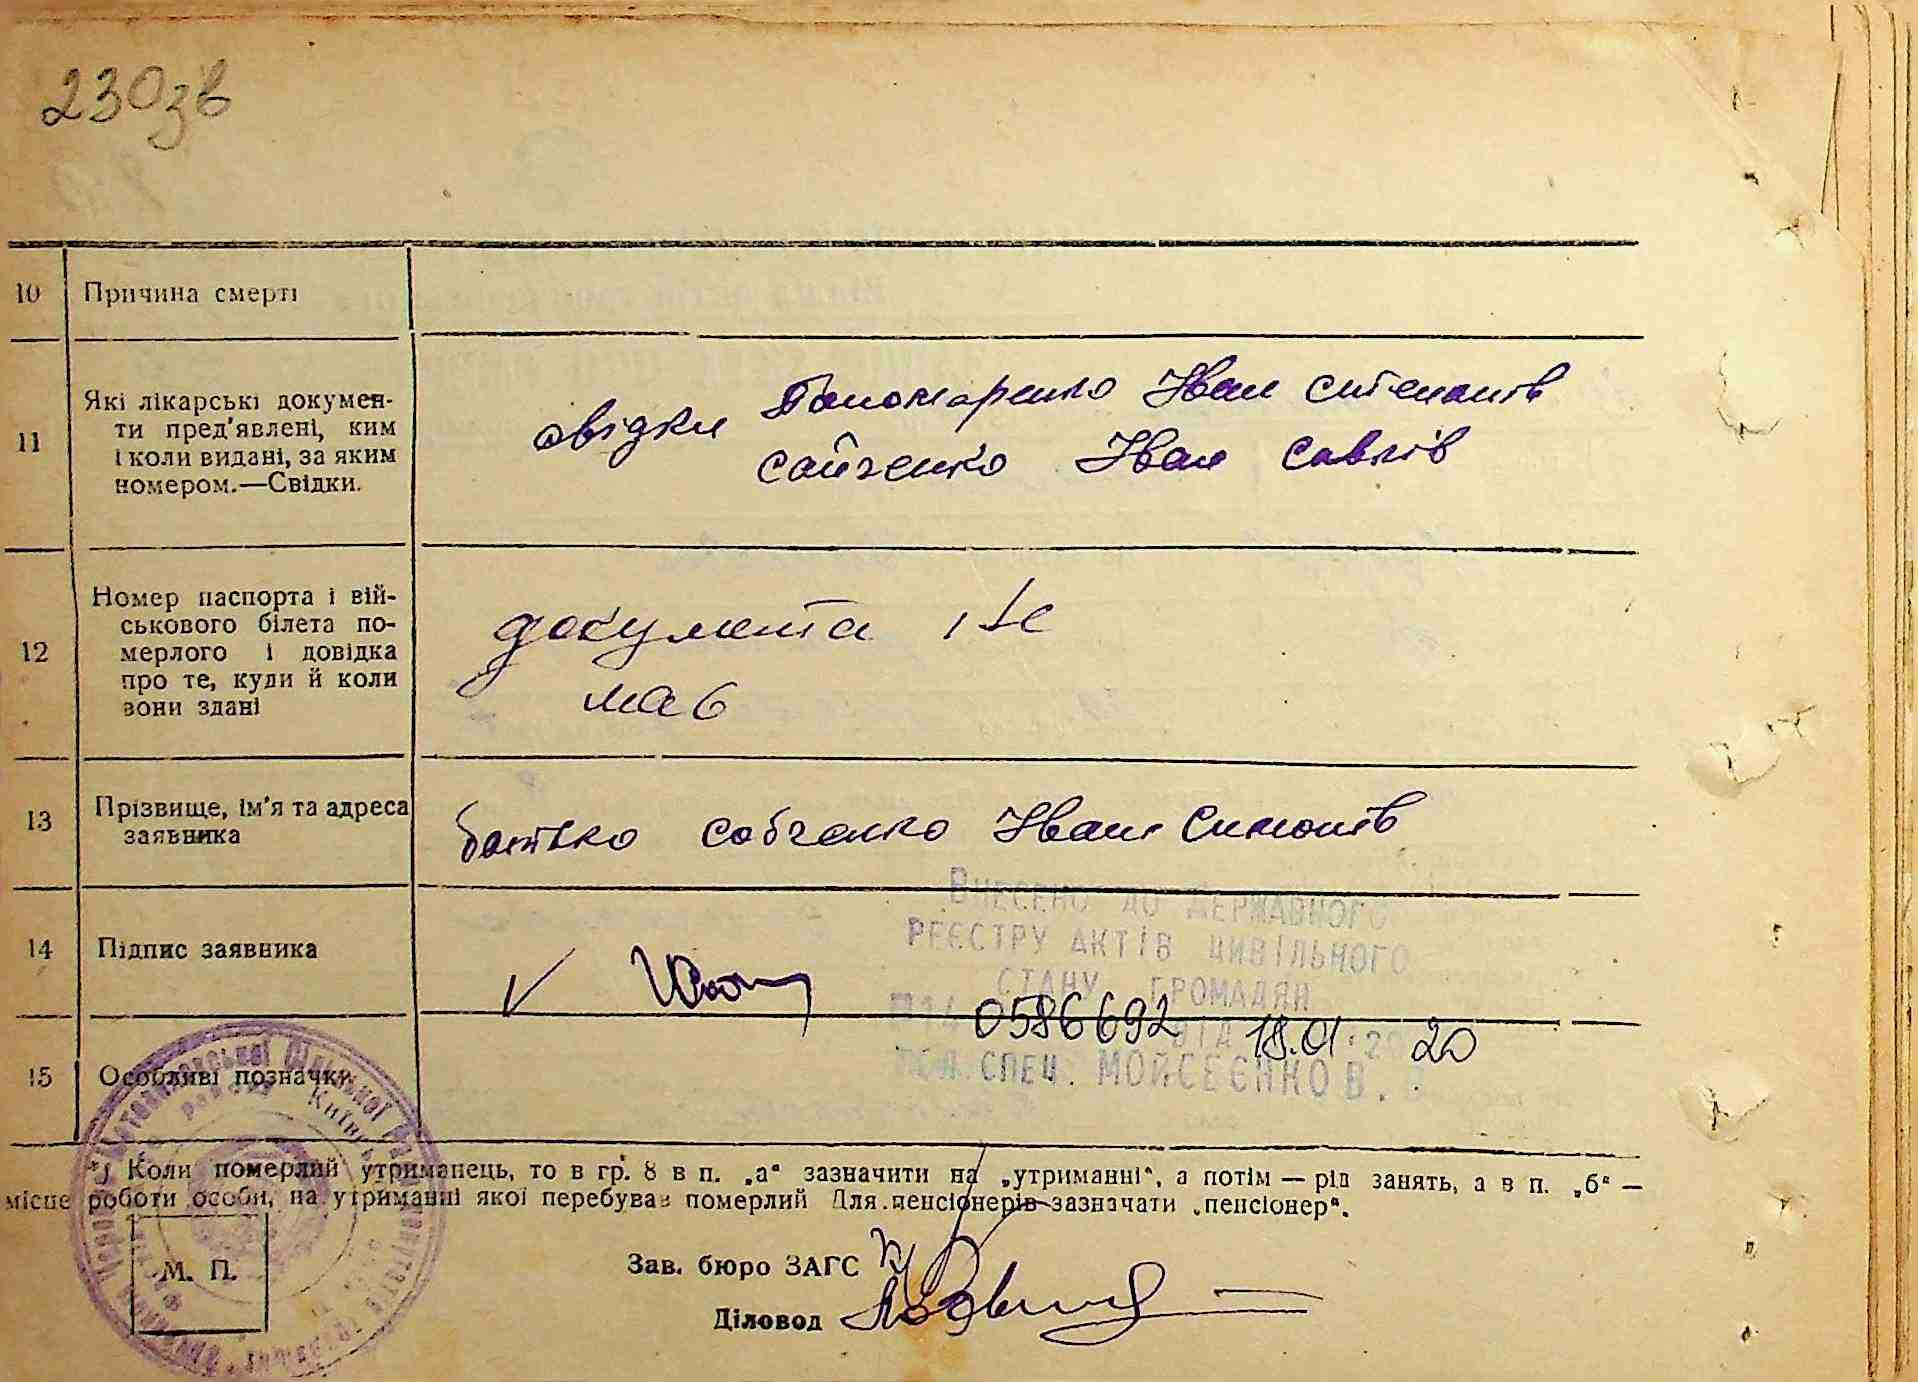 230зв
10 Причина смерті
11 Які лікарські докумен-
ти пред'явлені, ким
і коли видані, за яким
номером.—Свідки.
свідки Пономаренко Іван Степанів
Сайченко Іван Савків
12 Номер паспорта і вій-
ськового білета по-
мерлого і довідка
про те, куди й коли
вони здані
документа не
має
13 Прізвище, ім'я та адреса
заявника
батько Собченко Іван Симонів
14 Підпис заявника
ВНЕСЕНО ДО ДЕРЖАВНОГО
РЕЄСТРУ АКТІВ ЦИВІЛЬНОГО
СТАНУ ГРОМАДЯН
0586692 ВІД 18.01.2020
СПЕЦ. МОЙСЕЄНКО В.
15 Особливі позначки
*) Коли померлий утриманець, то в гр. 8 в п. „а“ зазначити на „утриманні“, а потім — рід занять, а в п. „б“ —
місце роботи особи, на утриманні якої перебував померлий Для пенсіонерів зазначати „пенсіонер“.
М. П.
Зав. бюро ЗАГС
Діловод